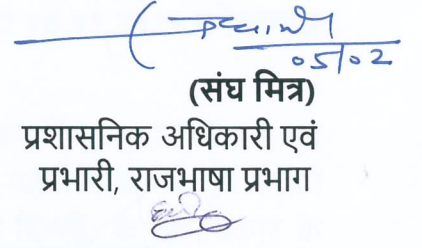 05/02
(संघ मित्र)
प्रशासनिक अधिकारी एवं
प्रभारी, राजभाषा प्रभाग